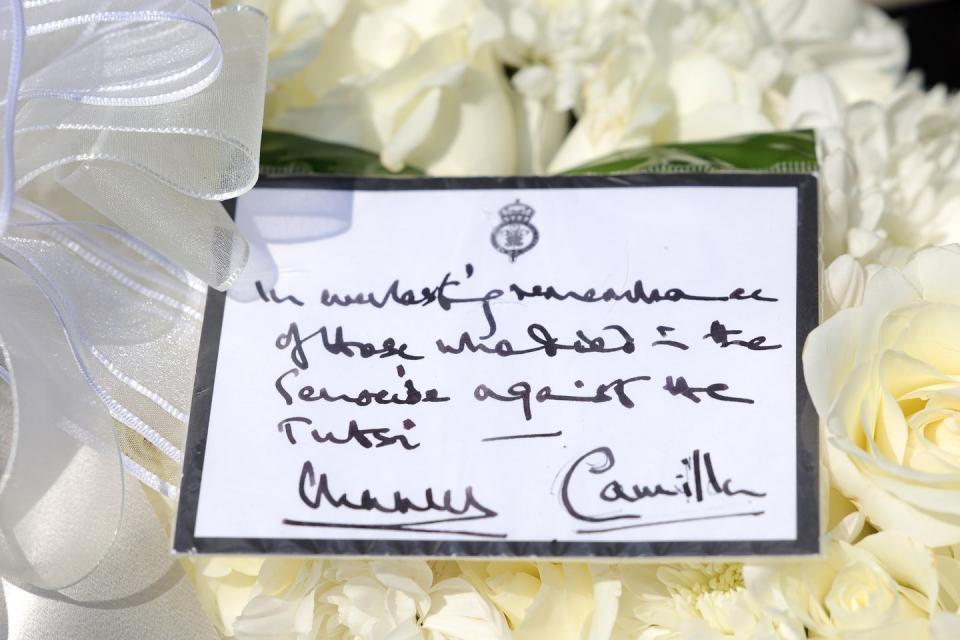 In everlasting remembrance
of those who died in the
Genocide against the
Tutsi
Charles Camilla